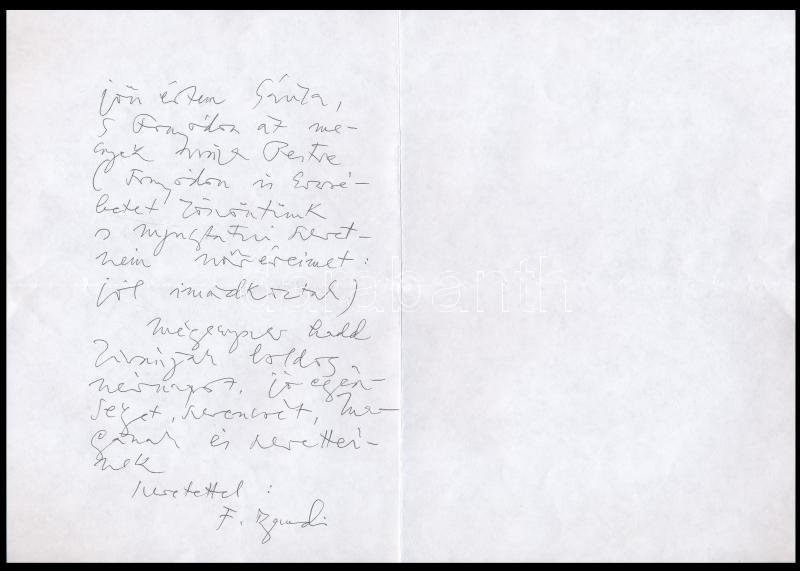 jön értem Gánta,
s Fonyódon át me-
gyek vissza Pestre
(Fonyódon is Erzsé-
betet köszöntünk
s nyugtatni szeret-
ném nővéreimet:
jól imádkoztak)
Mégegyszer hadd
kívánjak boldog
névnapot, jó egés-
séget, szerencsét, ma-
gának és szerettei-
nek
szeretettel:
F.
darabanth